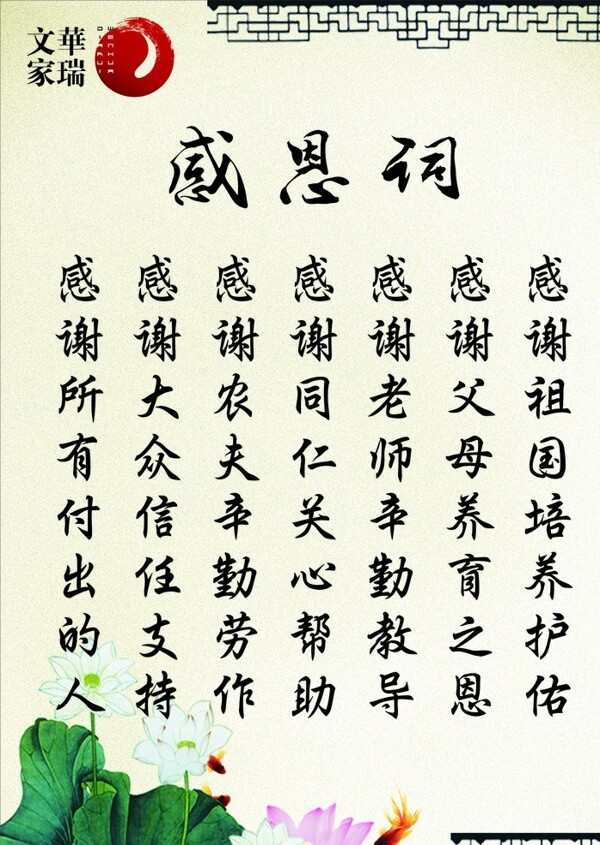 華瑞
文家
感恩词
感谢祖国培养护佑
感谢父母养育之恩
感谢老师辛勤教导
感谢同仁关心帮助
感谢农夫辛勤劳作
感谢大众信任支持
感谢所有付出的人